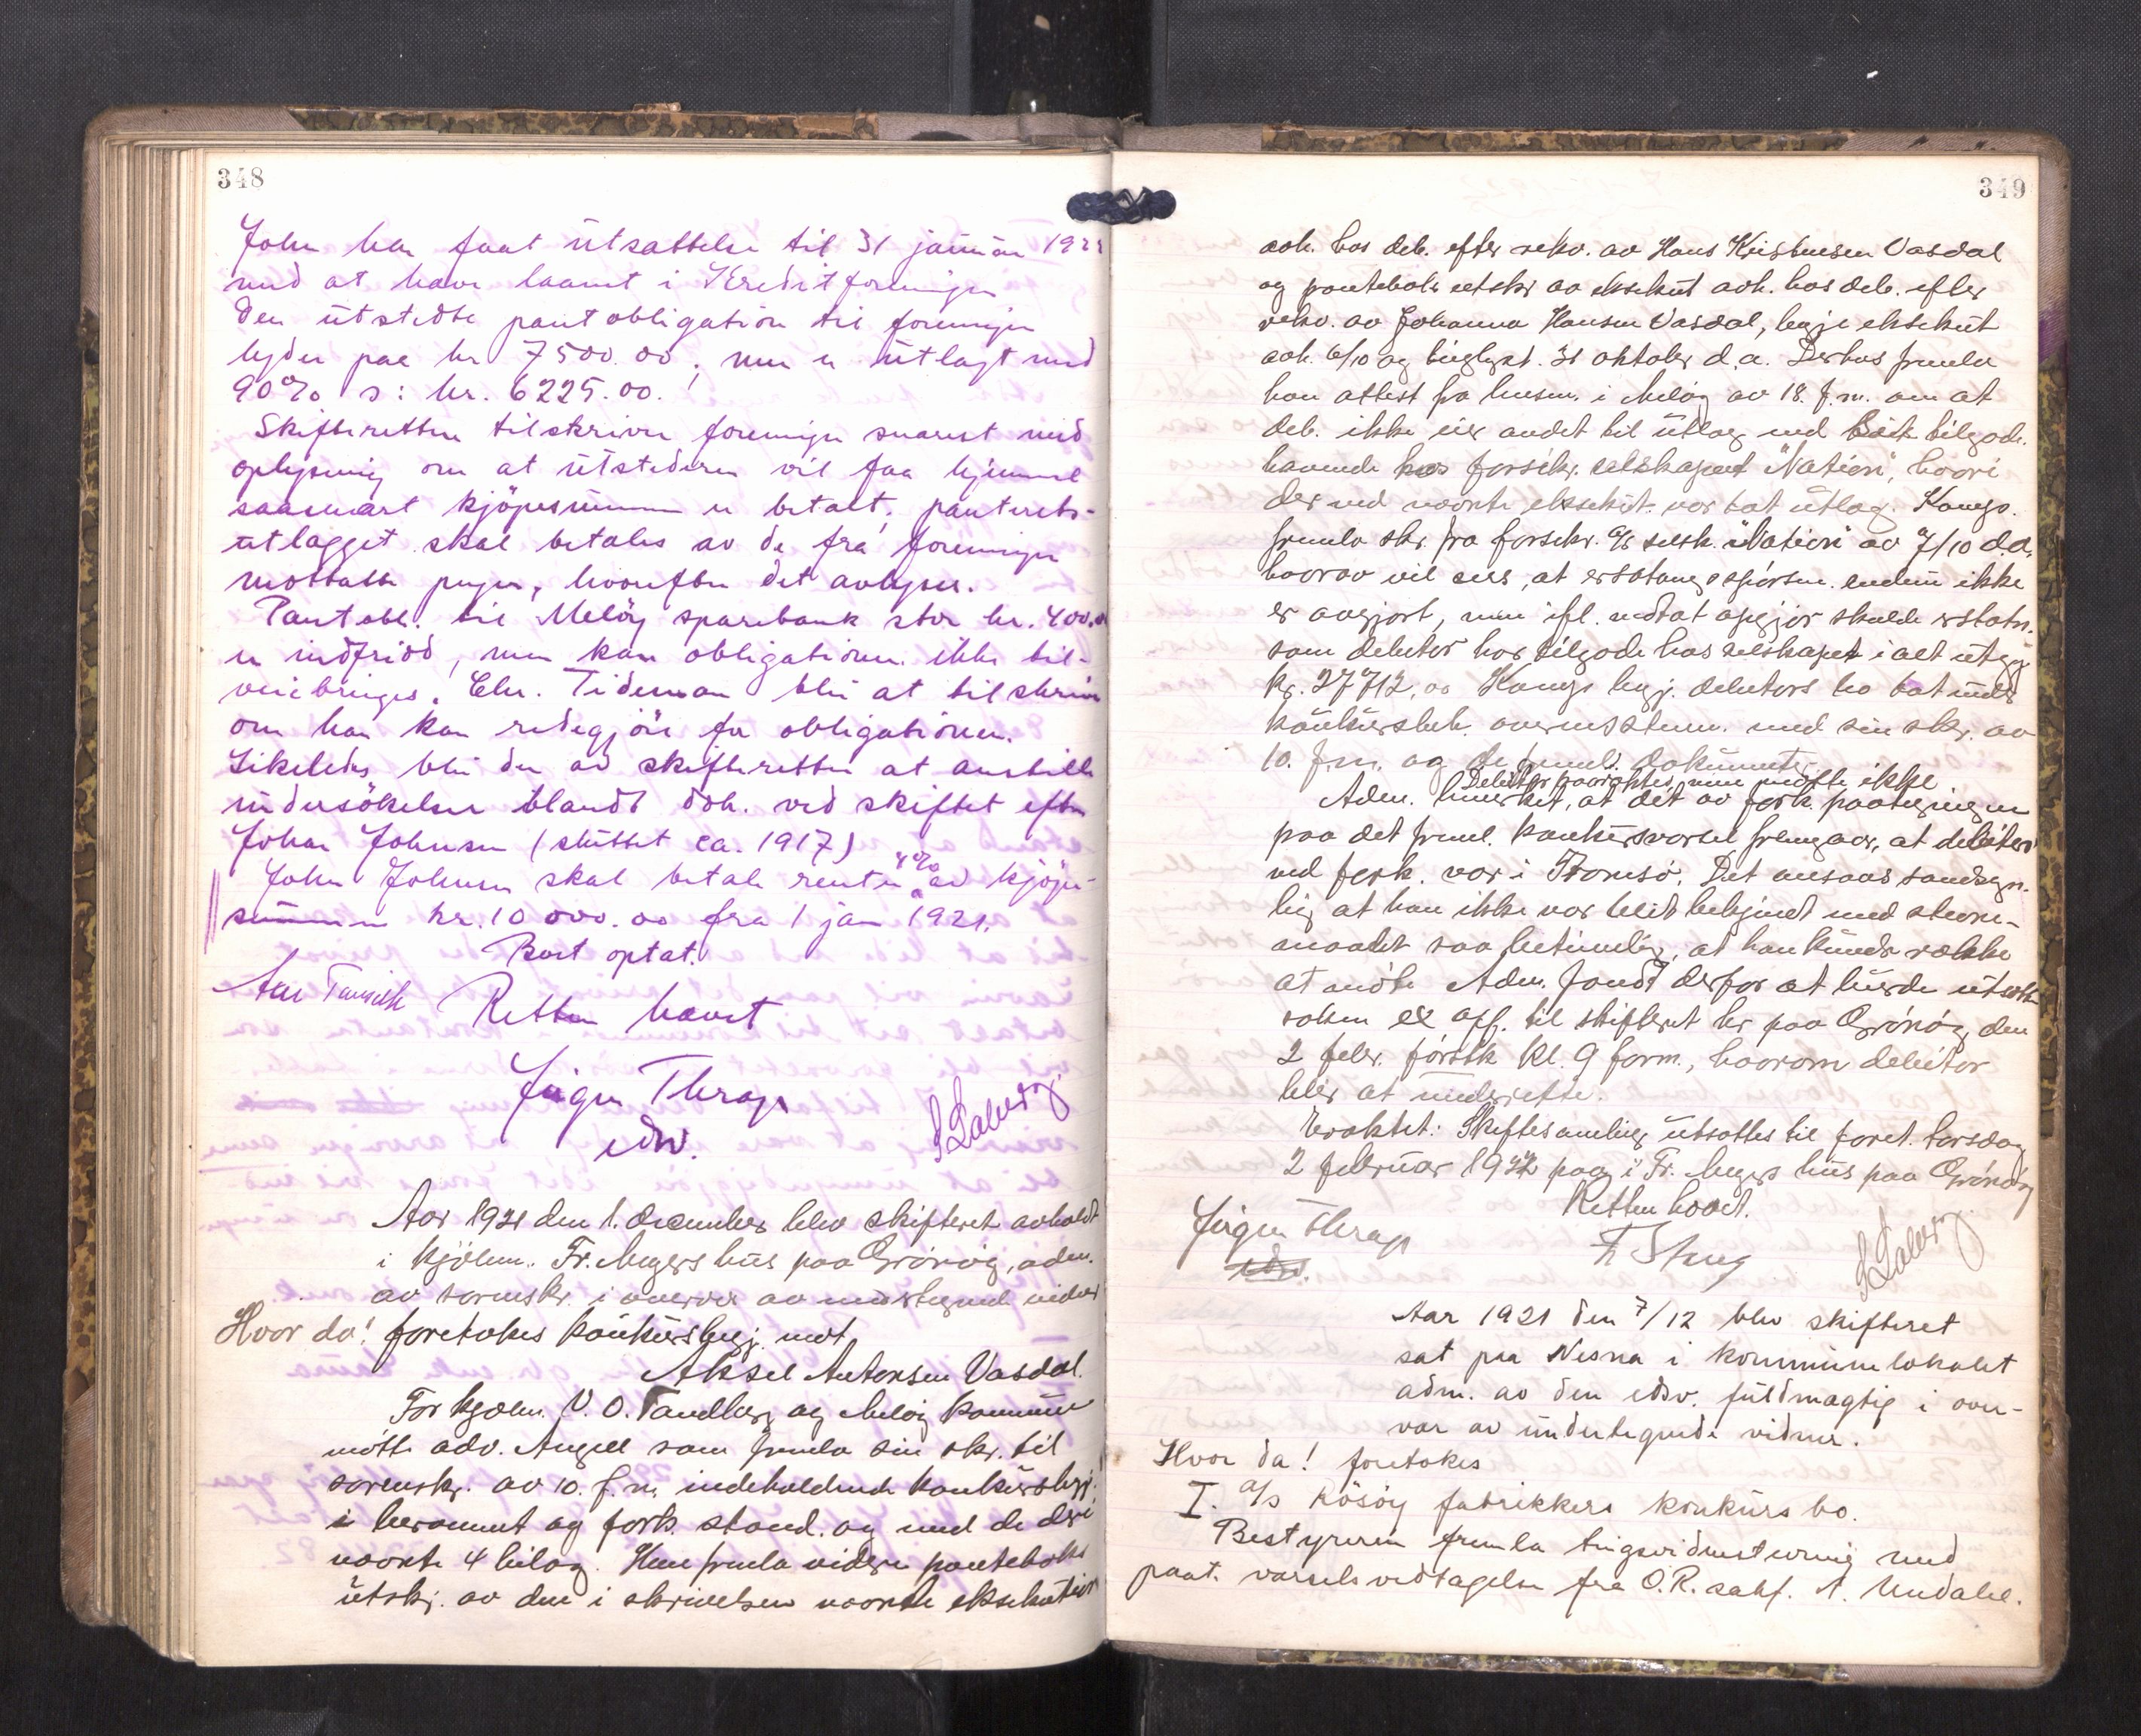 348
John har faat utsættelse til 31 januar 1922
med at have laanet i Kreditforeningen
Den utstedte pantobligation til foreningen
lyder paa kr 7500.00, men er utlagt med
90% ɔ: kr. 6225.00.
Skifteretten tilskriver foreningen snarest med
oplysning om at utstederen vil faa hjemmel
saasnart kjöpesummen er betalt. panterets-
utlægget skal betales av de fra foreningen
mottatte penger, hvorefter det avlyses.
Pantobl. til Melöy sparebank stor kr. 400.00
er indfriod, men kan obligationen ikke til-
veiebringes. Chr. Tideman blir at tilskrive
om han kan redegjöre for obligationen.
Likeledes blir der av skifteretten at anstille
undersökelser blandt dok. ved skiftet efter
Johan Johnsen (sluttet ca. 1917)
John Johnsen skal betale renter 4% av kjöpe-
summen kr. 10 000.00 fra 1 jan 1921.
Bort optat.
Retten hævet
Jörgen Thrap
edsv.
Aar 1921 den 1. december blev skifteret avholdt
i kjöbm. Fr. Meyers hus paa Grönöy, adm.
av sorenskr. i overvær av undertegnede vidner
Hvor da! foretokes konkursbegj. mot
Aksel Antonsen Vasdal.
For kjøbm. V. O. Tandberg og Melöy kommune
mötte adv. Angell som fremla sin skr. til
sorenskr. av 10. f.m. indeholdende konkursbegj.
i berammet og fork. stand. og med de deri
nævnte 4 bilag. Han fremla videre panteboks
utskr. av den i skrivelsen nævnte eksekution
349
avh. hos deb. efter rekv. av Hans Kristensen Vasdal
og panteboks utskr av eksekut avh. hos deb. efter
rekv. av Johanna Hansen Vasdal, begje eksekut
avh. 6/10 og tinglyst. 31 oktober d.a. Derhos fremla
han attest fra lensm. i Melöy av 18. f.m. om at
deb. ikke eier andet til utlæg end tilgode
havende hos forsikr. selskapet "Nation", hvori
der ved nævnte eksekut. var tat utlæg. Komp.
fremla skr. fra forsikr. A/S selsk. "Nation" av 7/10 d.a.
hvorav vil sees, at erstatningsspörsm. endnu ikke
er avgjort, men ifl. mottat opgjör skulde erstatn.
som debitor har tilgode hos selskapet i alt utgj.
kr. 27712,00 Komp. begj. debitors bo tat under
konkursbeh. overensstem. med sin skr. av
10. f.m. og de freml. dokumenter.
Debitor paaroptes, men mötte ikke
Adm. bemerket, at det av fork. paategningen
paa det freml. konkursvarsel fremgaar, at debitor
ved fork. var i Tromsö. Det ansaas sandsyn-
lig at han ikke var blit bekjendt med stevne-
maalet saa betimelig, at han kunde række
at möte. Adm. fandt derfor at burde utsætte
saken ex off. til skifteret her paa Grönöy den
2 febr. förstk kl. 9 form., hvorom debitor
blir at underrette.
Eraktet: Skiftesamling utsattes til foret. torsdag
2 februar 1922 paa i Fr. Meyers hus paa Grönöy
Retten hævet.
Jörgen Thrap
Aar 1921 den 7/12 blev skifteret
sat paa Nesna i kommunelokalet
adm. av den edsv. fuldmægtig i over-
vær av undertegnede vidner.
Hvor da! foretokes
I. A/S Rösöy fabrikkers konkurs bo.
Bestyreren fremla tingsvidnestevning med
paat. varselsvedtagelse fra O.R. sakf. A. Undahl.